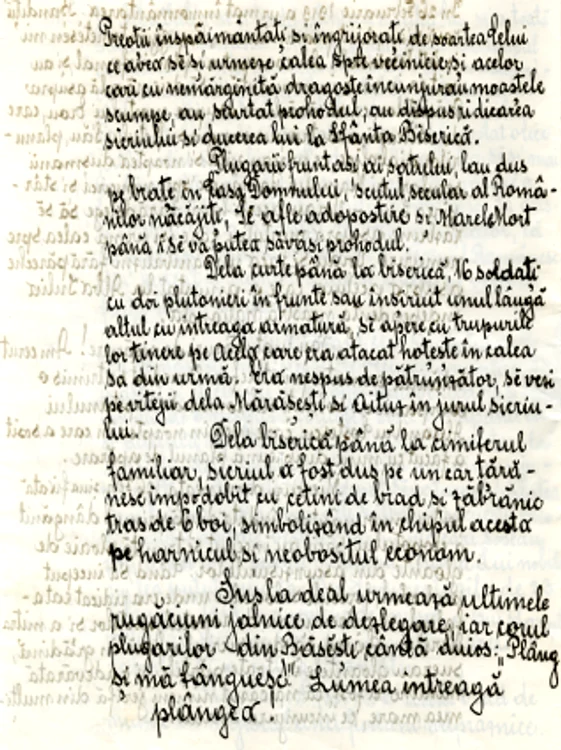 Preotii inspaimantati si îngrijorati de soartea Celui
ce avea să si urmeze calea spre vecinicie, si acelor
cari cu nemărginită dragoste incunjurau moastele
scumpe, au scurtat prohodul, au dispus ridicarea
sicriului si ducerea lui la Sfânta Biserică.
Plugarii fruntasi ai satului, l-au dus
pe brate în Casa Domnului, scutul secular al Româ-
nilor năcăjiti, să afle adopostire si Marele Mort
până i se va putea săvărsi prohodul.
Dela curte până la biserică, 16 soldati
cu doi plutonieri în frunte sau însiruit unul lângă
altul cu intreaga armatură, să apere cu trupurile
lor tinere pe Acela care era atacat hoteste în calea
sa din urmă. Era nespus de pătrunzător, să vezi
pe vitejii dela Mărăsesti si Oituz în jurul sicriu-
lui.
Dela biserică până la cimiterul
familiar, sicriul a fost dus pe un car tără-
nesc împodobit cu cetini de brad si zăbrănic
tras de 6 boi, simbolizând în chipul acesta
pe harnicul si neobositul econom.
Sus la deal urmează ultimele
rugăciuni jalnice de deslegare, iar corul
plugarilor din Băsesti cântă duios: "Plâng
si mă tânguesc!" Lumea intreagă
plângea!